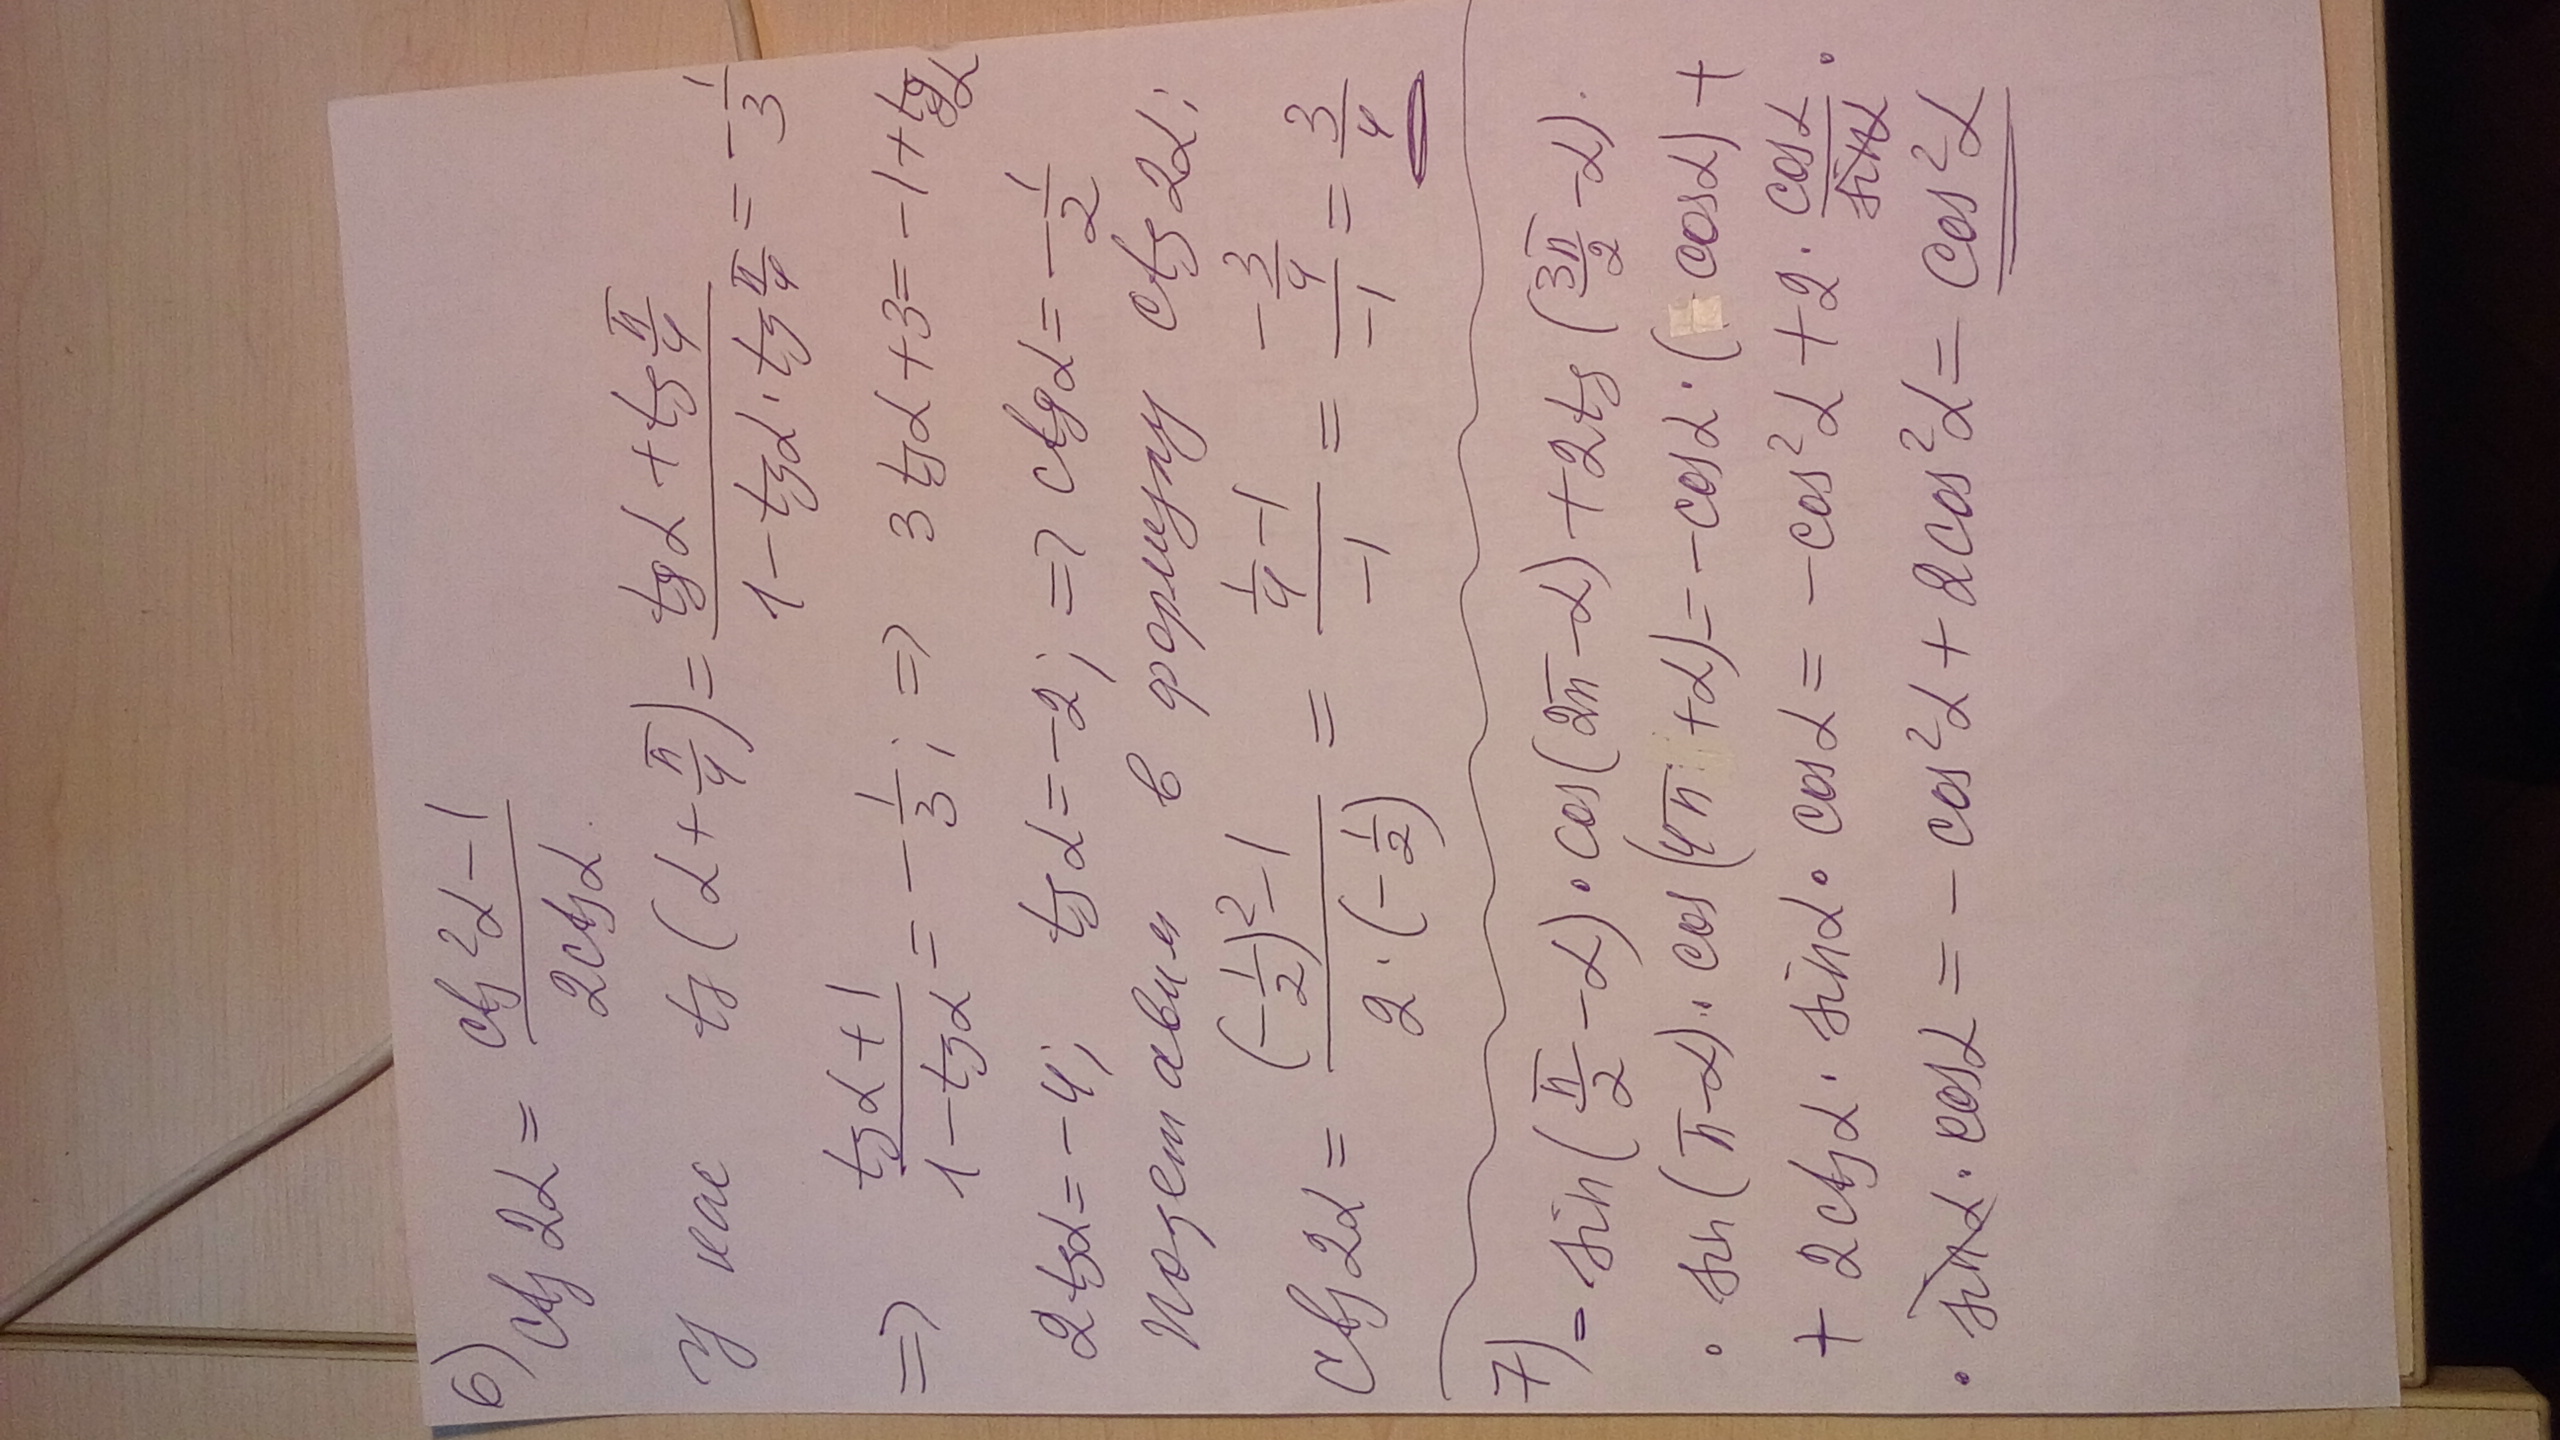 6) ctg 2α = (ctg²α − 1)/(2ctgα).
У нас tg(α + π/4) = (tgα + tg π/4)/(1 − tgα · tg π/4) = −1/3
=> (tgα + 1)/(1 − tgα) = −1/3; => 3tgα + 3 = −1 + tgα
2tgα = −4; tgα = −2; => ctgα = −1/2
Подставим в формулу ctg 2α;
ctg 2α = ((−1/2)² − 1)/(2 · (−1/2)) = (1/4 − 1)/(−1) = (−3/4)/(−1) = 3/4
7) − sin(π/2 − α) · cos(2π − α) + 2tg(3π/2 − α) ·
· sin(π − α) · cos(4π + α) = −cosα · (cosα) +
+ 2ctgα · sinα · cosα = −cos²α + 2 · cosα/sinα ·
· sinα · cosα = −cos²α + 2cos²α = cos²α